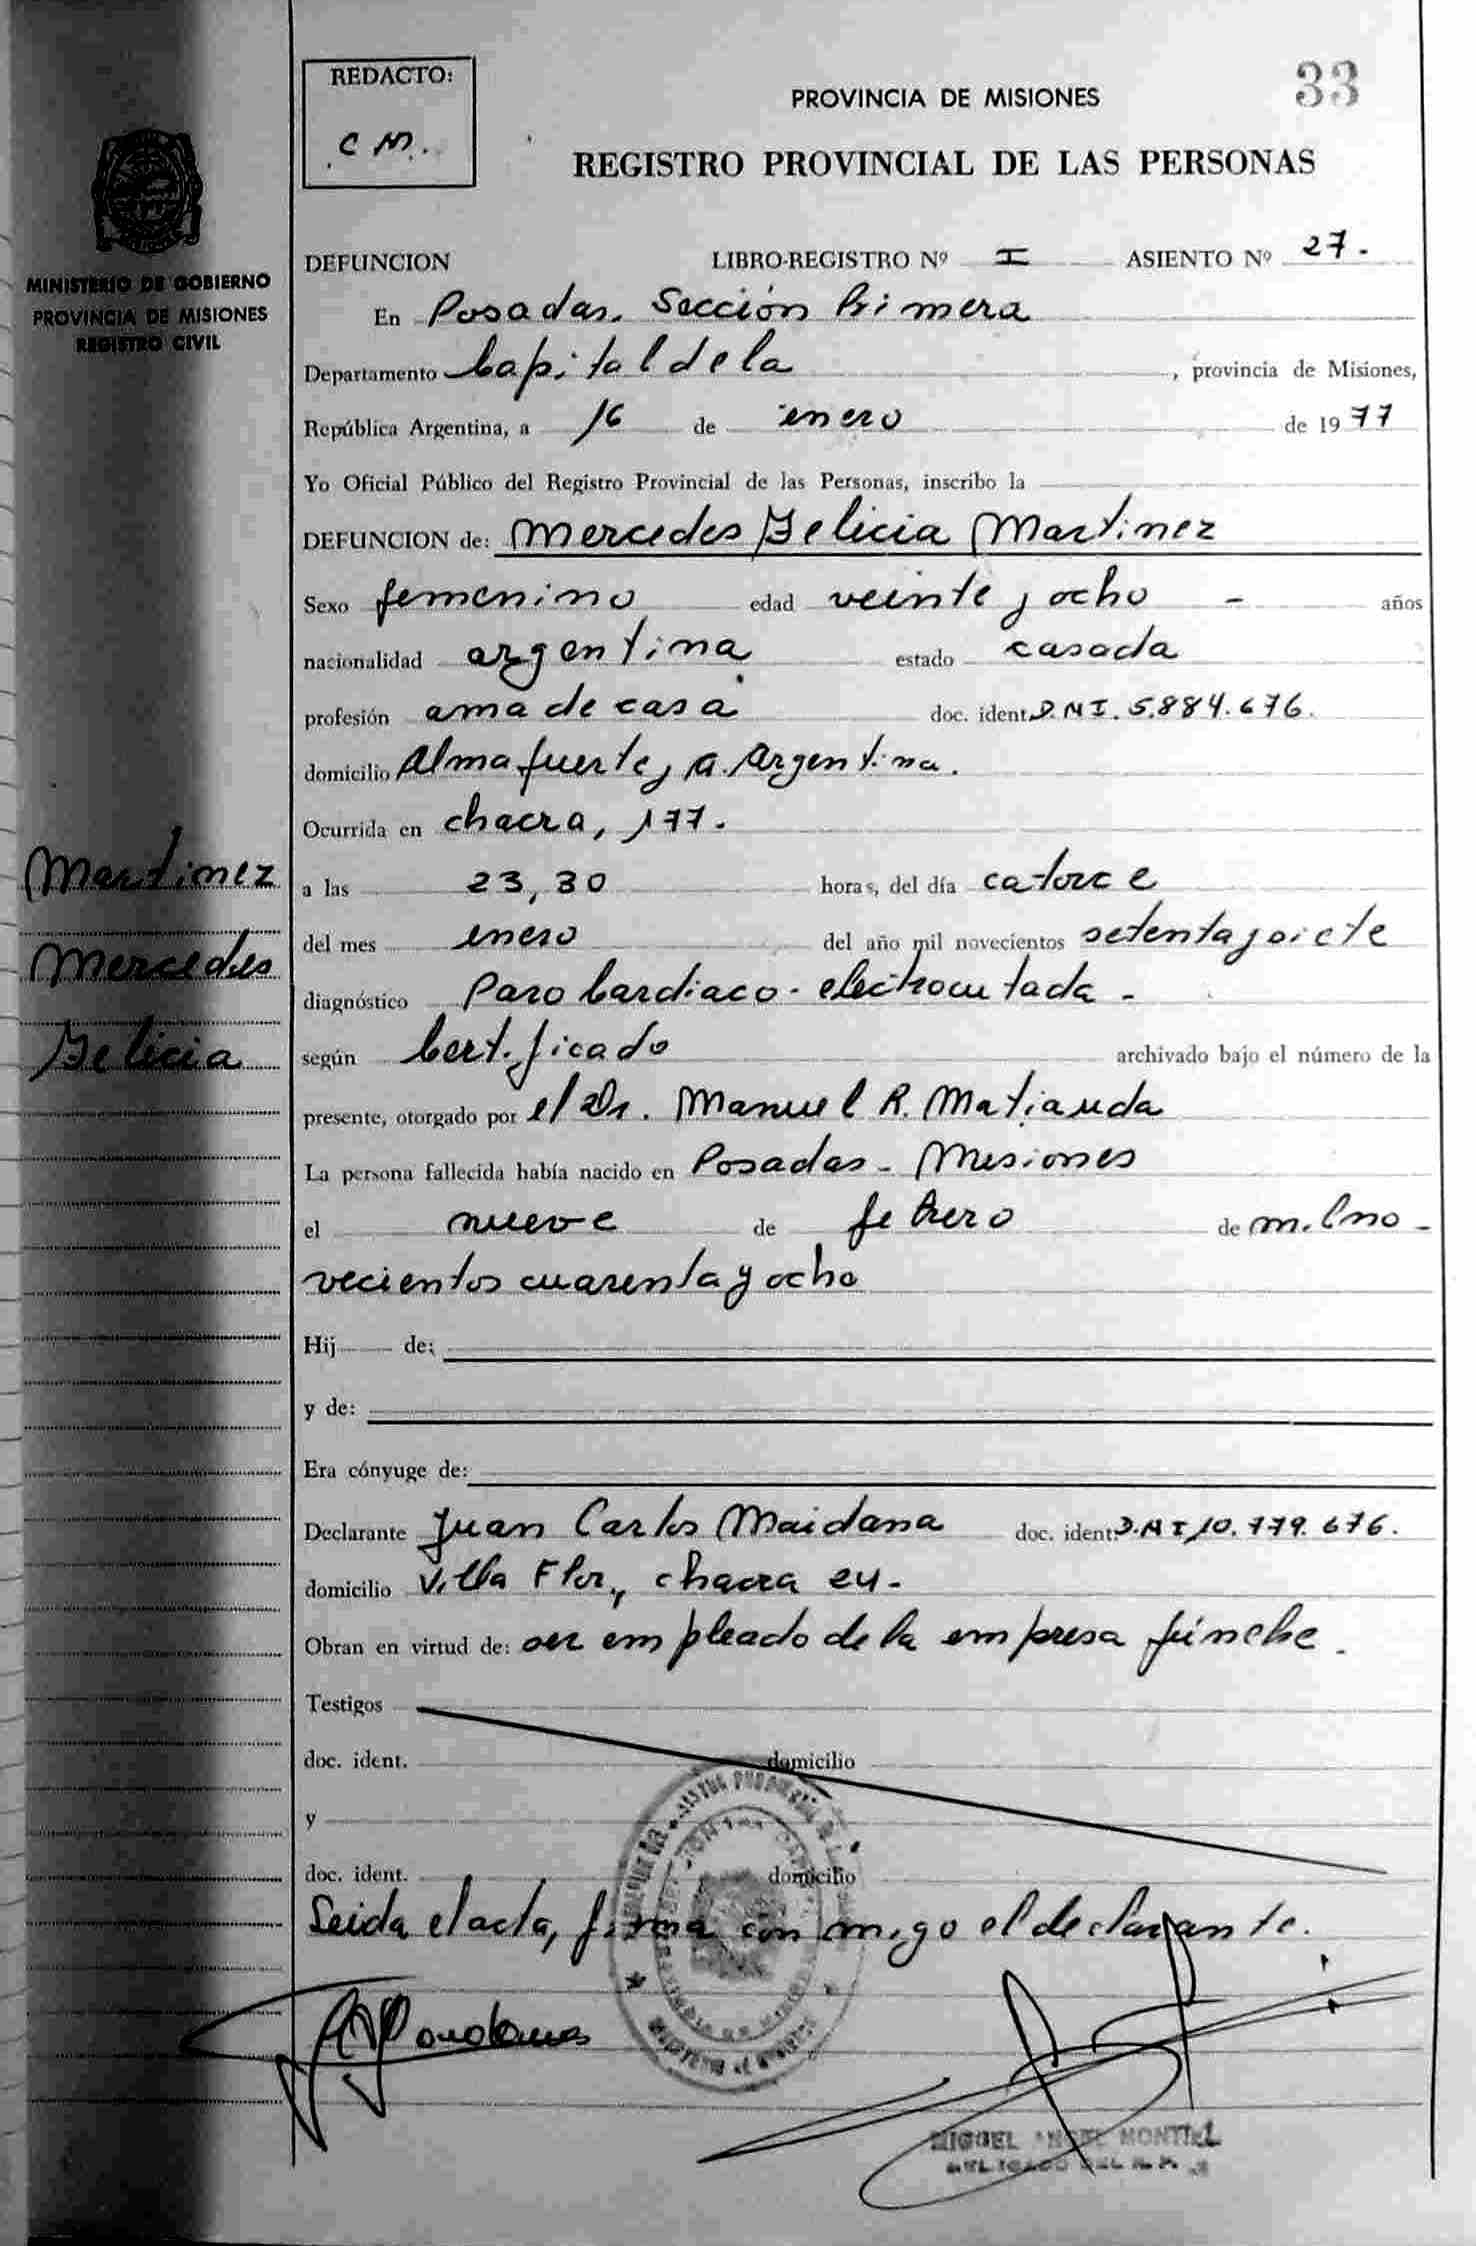 REDACTO:
C M.
33
PROVINCIA DE MISIONES
REGISTRO PROVINCIAL DE LAS PERSONAS
MINISTERIO DE GOBIERNO
PROVINCIA DE MISIONES
REGISTRO CIVIL
DEFUNCION LIBRO-REGISTRO Nº I ASIENTO Nº 27.
En Posadas. Sección Primera
Departamento Capital de la, provincia de Misiones,
República Argentina, a 16 de enero de 1977
Yo Oficial Público del Registro Provincial de las Personas, inscribo la
DEFUNCION de: Mercedes Felicia Martinez
Sexo femenino edad veinte y ocho - años
nacionalidad argentina estado casada
profesión ama de casa doc. ident. D.N.I. 5.884.676.
domicilio Almafuerte, A. Argentina.
Ocurrida en chacra, 177.
Martinez
Mercedes
Felicia
a las 23,30 horas, del día catorce
del mes enero del año mil novecientos setenta y siete
diagnóstico Paro Cardiaco - electrocutada -
según Certificado archivado bajo el número de la
presente, otorgado por el Dr. Manuel R. Matiauda
La persona fallecida había nacido en Posadas - Misiones
el nueve de febrero de mil no-
vecientos cuarenta y ocho
Hij de:
y de:
Era cónyuge de:
Declarante Juan Carlos Maidana doc. ident. D.N.I 10.779.676.
domicilio Villa Flor, chacra 24.
Obran en virtud de: ser empleado de la empresa fúnebre.
Testigos
doc. ident. domicilio
y
doc. ident. domicilio
Leida el acta, firma con migo el declarante.
MIGUEL ANGEL MONTIEL